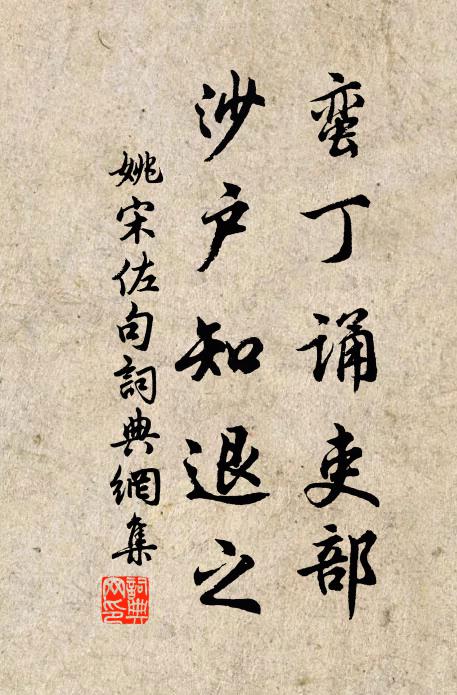 蛮丁诵吏部
沙户知退之
姚宋佐句詞典網集
詞典网印